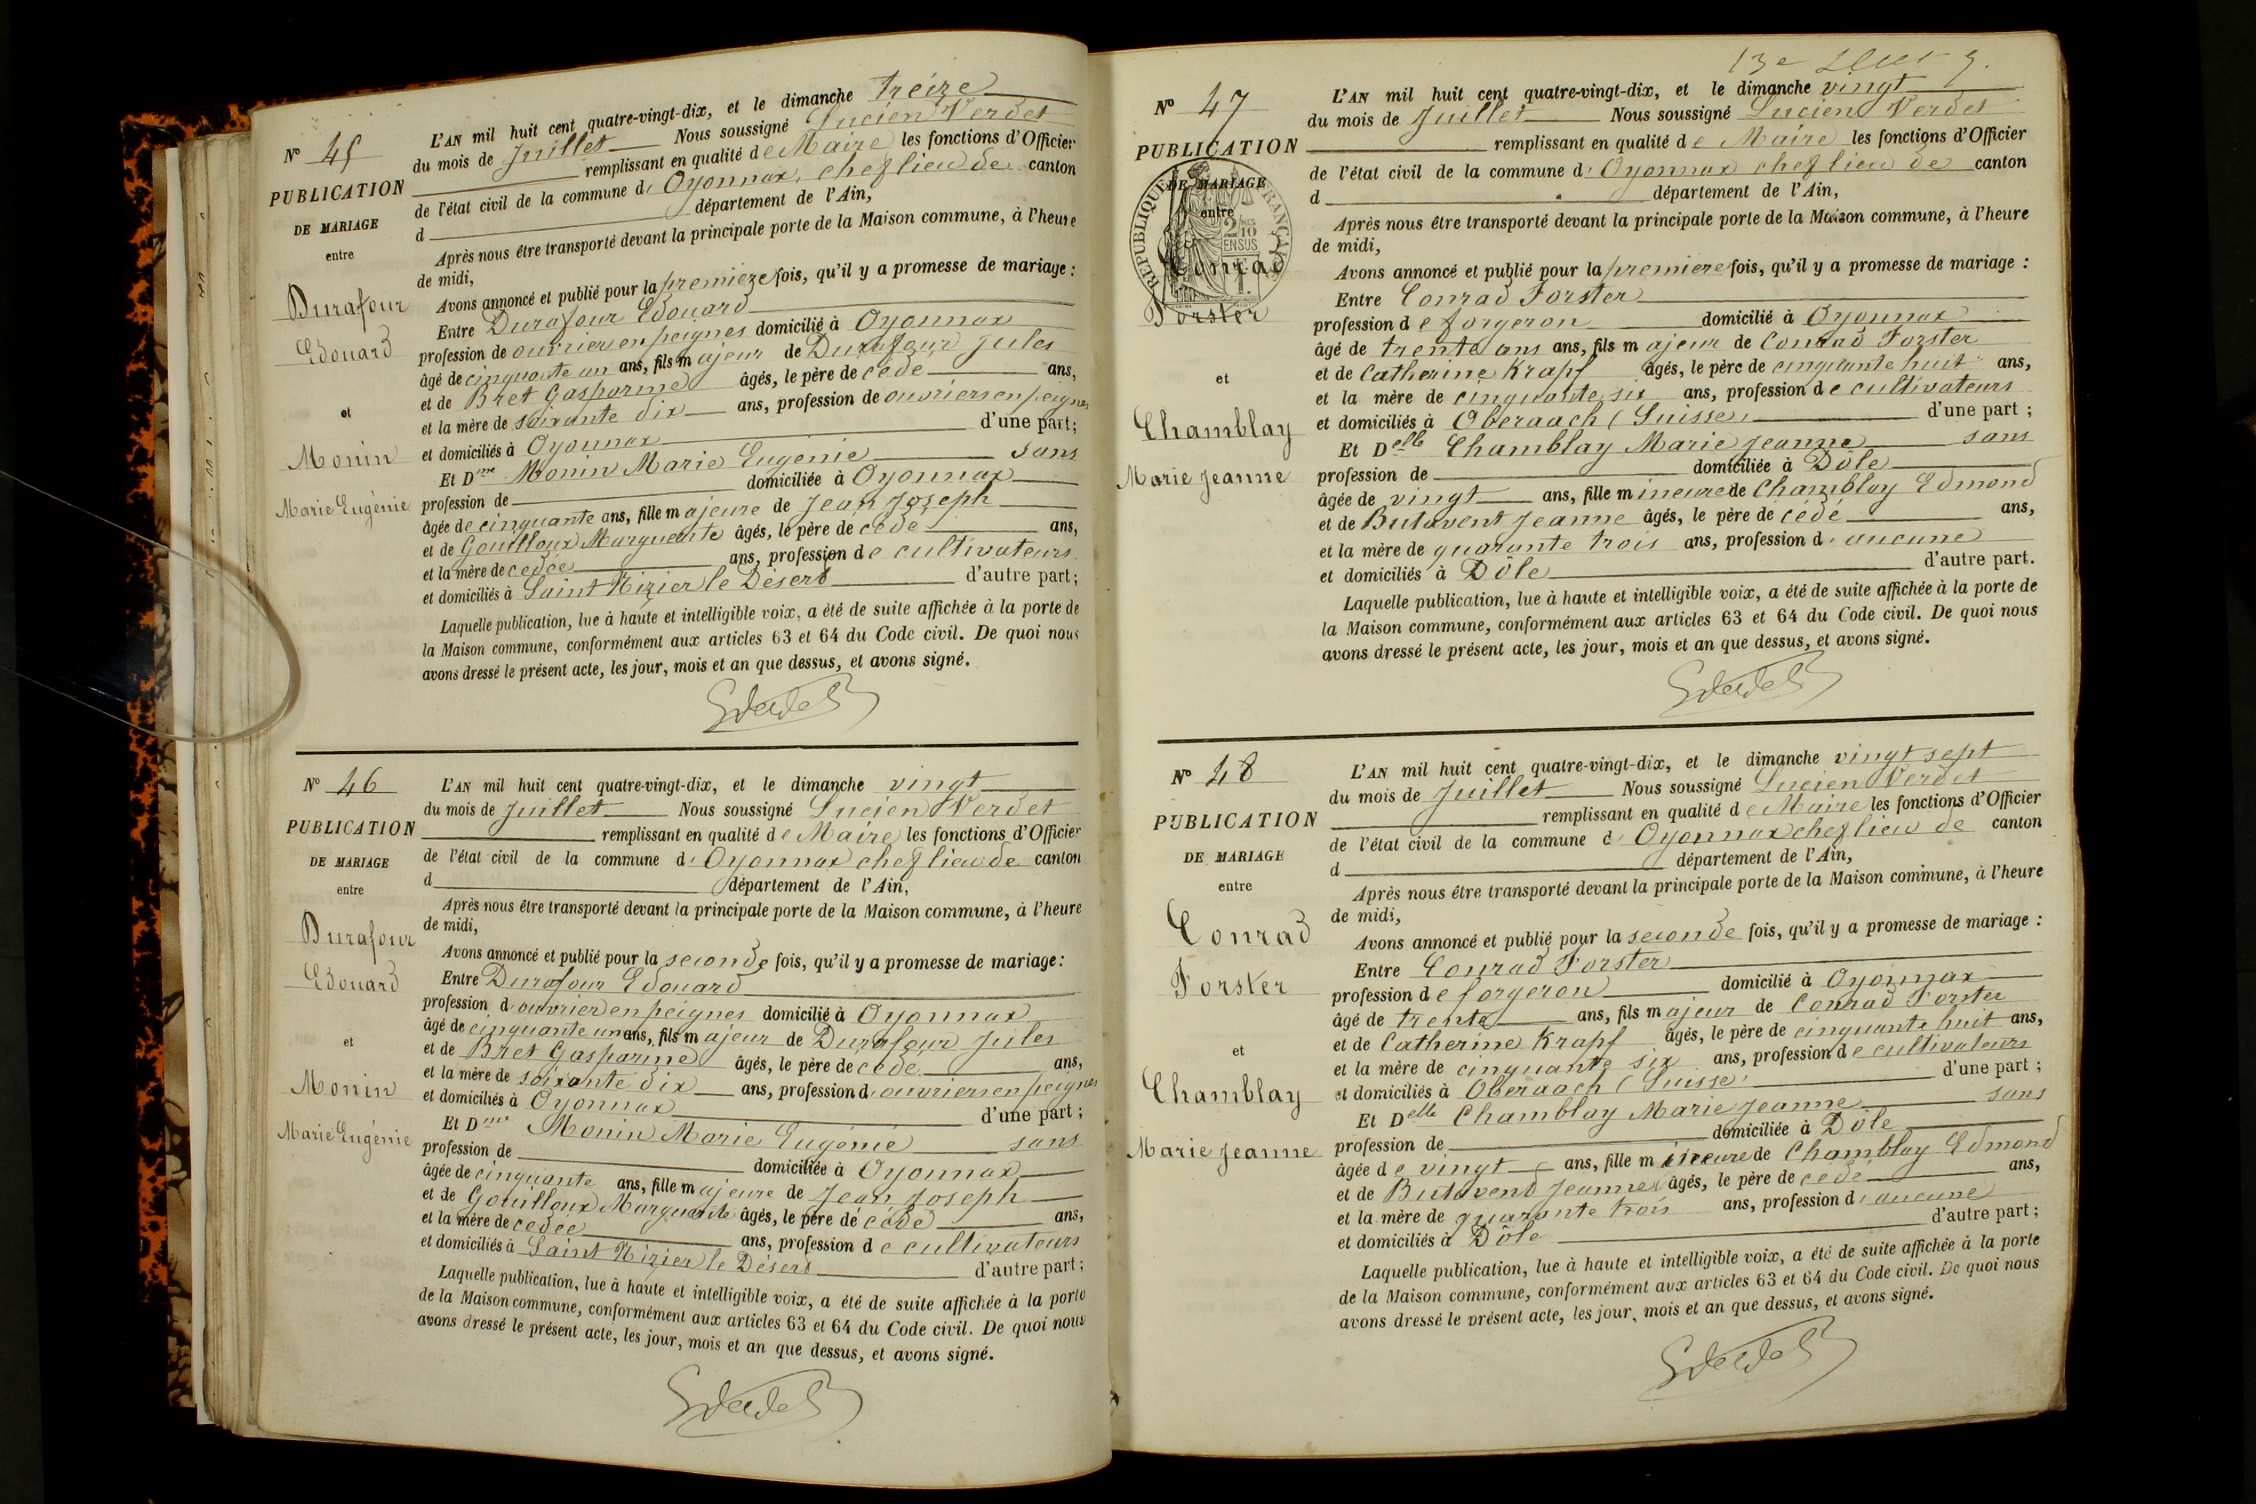 Nº 45
PUBLICATION
DE MARIAGE
entre
Durafour
Edouard
et
Monin
Marie Eugénie
L'AN mil huit cent quatre-vingt-dix, et le dimanche treize
du mois de Juillet Nous soussigné Lucien Verdet
remplissant en qualité de Maire les fonctions d'Officier
de l'état civil de la commune d' Oyonnax, chef lieu de canton
d département de l'Ain,
Après nous être transporté devant la principale porte de la Maison commune, à l'heure
de midi,
Avons annoncé et publié pour la première fois, qu'il y a promesse de mariage :
Entre Durafour Edouard
profession de ouvrier en peignes domicilié à Oyonnax
âgé de cinquante un ans, fils majeur de Durafour Jules
et de Bret Gasparine âgés, le père de cédé ans,
et la mère de soixante dix ans, profession de ouvriers en peignes
et domiciliés à Oyonnax d'une part;
Et Dme Monin Marie Eugénie sans
profession de domiciliée à Oyonnax
âgée de cinquante ans, fille majeure de Jean Joseph
et de Gouilloux Marguerite âgés, le père de cédé ans,
et la mère de cedée ans, profession de cultivateurs
et domiciliés à Saint Nizier le Désert d'autre part;
Laquelle publication, lue à haute et intelligible voix, a été de suite affichée à la porte de
la Maison commune, conformément aux articles 63 et 64 du Code civil. De quoi nous
avons dressé le présent acte, les jour, mois et an que dessus, et avons signé.
Nº 46
PUBLICATION
DE MARIAGE
entre
Durafour
Edouard
et
Monin
Marie Eugénie
L'AN mil huit cent quatre-vingt-dix, et le dimanche vingt
du mois de Juillet Nous soussigné Lucien Verdet
remplissant en qualité de Maire les fonctions d'Officier
de l'état civil de la commune d' Oyonnax chef lieu de canton
d département de l'Ain,
Après nous être transporté devant la principale porte de la Maison commune, à l'heure
de midi,
Avons annoncé et publié pour la seconde fois, qu'il y a promesse de mariage:
Entre Durafour Edouard
profession d'ouvrier en peignes domicilié à Oyonnax
âgé de cinquante un ans, fils majeur de Durafour Jules
et de Bret Gasparine âgés, le père de cédé ans,
et la mère de soixante dix ans, profession d'ouvriers en peignes
et domiciliés à Oyonnax d'une part;
Et Dme Monin Marie Eugénie sans
profession de domiciliée à Oyonnax
âgée de cinquante ans, fille majeure de Jean Joseph
et de Gouilloux Marguerite âgés, le père de cédé ans,
et la mère de cedée ans, profession de cultivateurs
et domiciliés à Saint Nizier le Désert d'autre part;
Laquelle publication, lue à haute et intelligible voix, a été de suite affichée à la porte
de la Maison commune, conformément aux articles 63 et 64 du Code civil. De quoi nous
avons dressé le présent acte, les jour, mois et an que dessus, et avons signé.
13e
Nº 47
PUBLICATION
DE MARIAGE
entre
RÉPUBLIQUE FRANÇAISE
2/10
EN SUS
Conrad
Forster
et
Chamblay
Marie Jeanne
L'AN mil huit cent quatre-vingt-dix, et le dimanche vingt
du mois de Juillet Nous soussigné Lucien Verdet
remplissant en qualité de Maire les fonctions d'Officier
de l'état civil de la commune d' Oyonnax chef lieu de canton
d département de l'Ain,
Après nous être transporté devant la principale porte de la Maison commune, à l'heure
de midi,
Avons annoncé et publié pour la première fois, qu'il y a promesse de mariage :
Entre Conrad Forster
profession de forgeron domicilié à Oyonnax
âgé de trente ans ans, fils majeur de Conrad Forster
et de Catherine Krapf âgés, le père de cinquante huit ans,
et la mère de cinquante six ans, profession de cultivateurs
et domiciliés à Oberaach (Suisse) d'une part ;
Et Delle Chamblay Marie Jeanne sans
profession de domiciliée à Dôle
âgée de vingt ans, fille mineure de Chamblay Edmond
et de Butavent Jeanne âgés, le père de cédé ans,
et la mère de quarante trois ans, profession d'aucune
et domiciliés à Dôle d'autre part.
Laquelle publication, lue à haute et intelligible voix, a été de suite affichée à la porte de
la Maison commune, conformément aux articles 63 et 64 du Code civil. De quoi nous
avons dressé le présent acte, les jour, mois et an que dessus, et avons signé.
Nº 48
PUBLICATION
DE MARIAGE
entre
Conrad
Forster
et
Chamblay
Marie Jeanne
L'AN mil huit cent quatre-vingt-dix, et le dimanche vingt sept
du mois de Juillet Nous soussigné Lucien Verdet
remplissant en qualité de Maire les fonctions d'Officier
de l'état civil de la commune d' Oyonnax chef lieu de canton
d département de l'Ain,
Après nous être transporté devant la principale porte de la Maison commune, à l'heure
de midi,
Avons annoncé et publié pour la seconde fois, qu'il y a promesse de mariage :
Entre Conrad Forster
profession de forgeron domicilié à Oyonnax
âgé de trente ans, fils majeur de Conrad Forster
et de Catherine Krapf âgés, le père de cinquante huit ans,
et la mère de cinquante six ans, profession de cultivateurs
et domiciliés à Oberaach (Suisse) d'une part ;
Et Delle Chamblay Marie Jeanne sans
profession de domiciliée à Dôle
âgée de vingt ans, fille mineure de Chamblay Edmond
et de Butavend Jeanne âgés, le père de cédé ans,
et la mère de quarante trois ans, profession d'aucune
et domiciliés à Dôle d'autre part ;
Laquelle publication, lue à haute et intelligible voix, a été de suite affichée à la porte
de la Maison commune, conformément aux articles 63 et 64 du Code civil. De quoi nous
avons dressé le présent acte, les jour, mois et an que dessus, et avons signé.